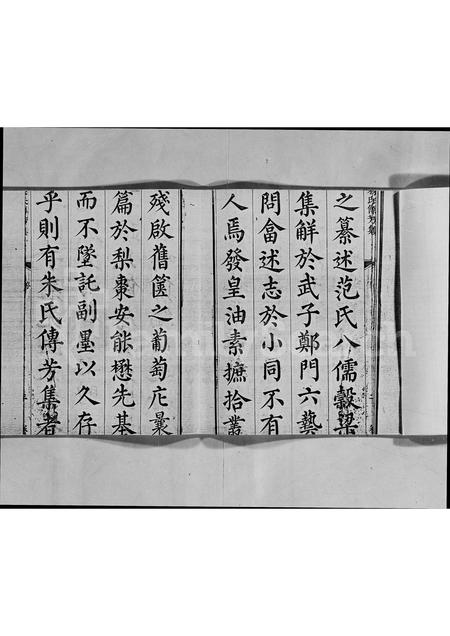 之纂述范氏八儒穀梁
集解於武子鄭門六藝
問畣述志於小同不有
人焉發皇油素摭拾叢
殘啟舊篋之葡萄庀曩
篇於梨棗安能懋先基
而不墜託副墨以久存
乎則有朱氏傳芳集者